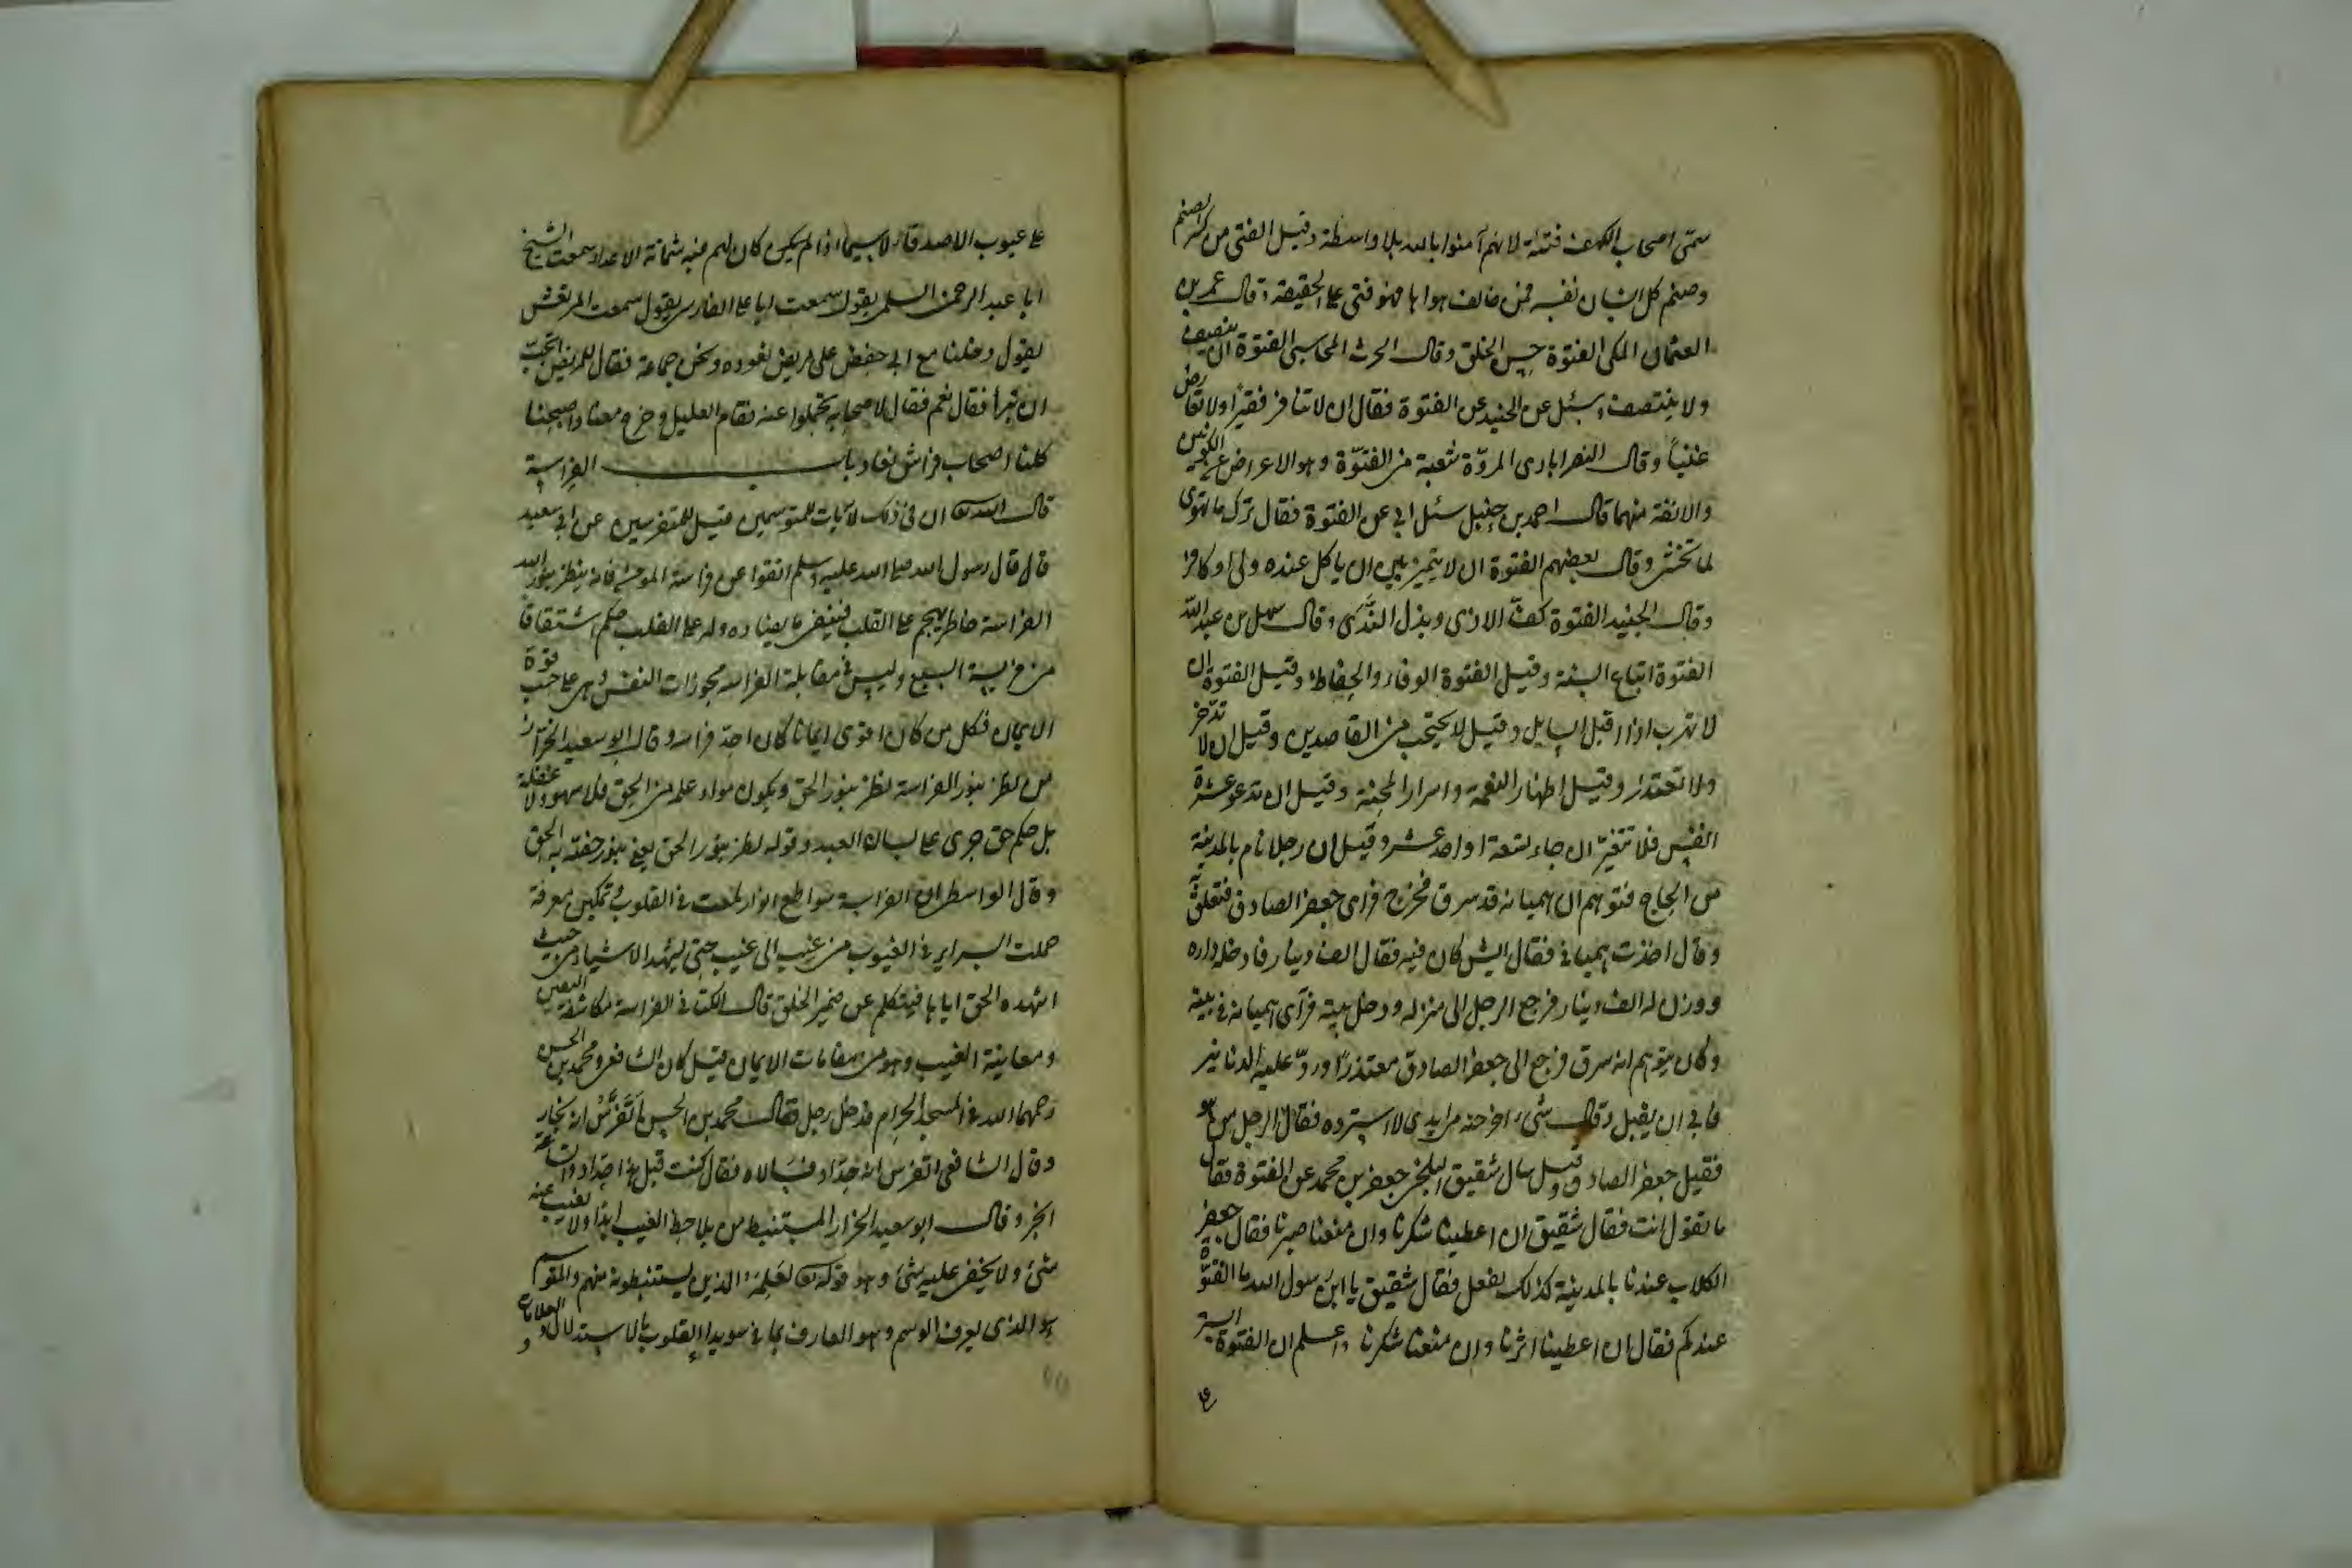 سمّى اصحاب الكهف فتية لانهم آمنوا بالله بلا واسطة وقيل الفتى من كسر الصنم
وصنم كل انسان نفسه فمن خالف هواها فهو فتى على الحقيقة وقال عمر بن
العثمان المكى الفتوة حسن الخلق وقال الحرث المحاسبى الفتوة ان ينصف
ولا ينتصف وسئل عن الجنيد عن الفتوة فقال ان لا تنافر فقيرًا ولا تعارض
غنيًا وقال النصرابادى المروّة شعبة من الفتوّة وهو الاعراض عن الكونين
والانفة منهما قال احمد بن حنبل سئل ابى عن الفتوة فقال ترك ما تهوى
لما تخشى وقال بعضهم الفتوة ان لا يتميز بين ان ياكل عنده ولى او كافر
وقال الجنيد الفتوة كفّ الاذى وبذل النَّدَى وقال سهل بن عبد الله
الفتوة اتباع السنة وقيل الفتوة الوفاء والحفاظ وقيل الفتوة ان
لا تهرب اذا اقبل السايل وقيل لا يحتجب من القاصدين وقيل ان لا تدّخر
ولا تعتذر وقيل اظهار النعمة واسرار المحنة وقيل ان تدعو عشرة
انفس فلا تتغيّر ان جاء تسعة او احد عشر وقيل ان رجلا نام بالمدينة
من الحاج فتوهم ان هميانه قد سرق فخرج فراى جعفر الصادق فتعلق به
وقال اخذت هميانى فقال ايش كان فيه فقال الف دينار فادخله داره
ووزن له الف دينار فرجع الرجل الى منزله ودخل بيته فرآى هميانه فى بيته
وكان يتوهم انه سرق فرجع الى جعفر الصادق معتذرًا وردّ عليه الدنانير
فابى ان يقبل وقال شىء اخرجته من يدى لا استرده فقال الرجل من هو
فقيل جعفر الصادق وقيل سال شقيق البلخى جعفر بن محمد عن الفتوة فقال
ما تقول انت فقال شقيق ان اعطينا شكرنا وان منعنا صبرنا فقال جعفر
الكلاب عندنا بالمدينة كذلك تفعل فقال شقيق يا ابن رسول الله ما الفتوّة
عندكم فقال ان اعطينا اثرنا وان منعنا شكرنا واعلم ان الفتوة الستر
على
على عيوب الاصدقاء لا سيما اذا لم كان لهم فيه شماتة الاعداء سمعت الشيخ
ابا عبد الرحمن السلمى يقول سمعت ابا على الفارسى يقول سمعت المرتعش
يقول دخلنا مع ابى حفص على مريض نعوده ونحن جماعة فقال للمريض اتحبّ
ان تبرأ فقال نعم فقال لاصحابه تحملوا عنه فقام العليل وخرج معنا واصبحنا
كلنا اصحاب فراش نعاد باب الفراسة
قال الله تعالى ان فى ذلك لآيات للمتوسمين قيل للمتفرسين عن ابى سعيد
قال قال رسول الله صلى الله عليه وسلم اتقوا عن فراسة المومن فانه ينظر بنور الله
الفراسة خاطر يهجم على القلب فينفى ما يضاده وله على القلب حكم اشتقاقا
من فريسة السبع وليس فى مقابلة الفراسة مجوزات النفس وهى على حسب قوة
الايمان فكل من كان اقوى ايمانا كان احدّ فراسة وقال ابو سعيد الخراز
من نظر بنور الفراسة نظر بنور الحق ويكون مواد علمه من الحق فلا سهو ولا غفلة
بل حكم حق جرى على لسان العبد وقوله نظر بنور الحق يعنى بنور خصّه به الحق
وقال الواسطى ان الفراسة سواطع انوار لمعت فى القلوب وتمكين معرفة
حملت السراير فى الغيوب من غيب الى غيب حتى يشهد الاشياء من حيث
اشهده الحق اياها فيتكلم عن ضمير الخلق قال الكتانى الفراسة مكاشفة اليقين
ومعاينة الغيب وهو من مقامات الايمان قيل كان الشافعى ومحمد بن الحسن
رحمهما الله فى المسجد الحرام فدخل رجل فقال محمد بن الحسن اَتَفَرَّسُ انه نجار
وقال الشافعى اتفرس انه حدّاد فسَالاه فقال كنت قبل هذا حدّادا والساعة
انجر وقال ابو سعيد الخراز المستنبط من يلاحظ الغيب ابدًا ولا يغيب عنه
شىء ولا يخفى عليه شىء وهو قوله تعالى لعَلِمَهُ الذين يستنبطونه منهم والمتوسم
هو الذى يعرف الوسم وهو العارف بما فى سويداء القلوب بالاستدلال والعلامات
و